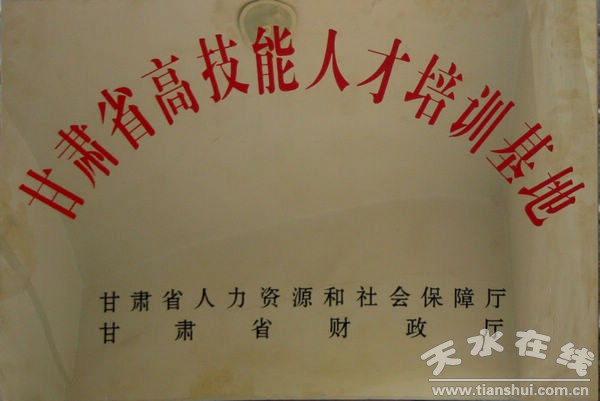 甘肃省高技能人才培训基地
甘肃省人力资源和社会保障厅
甘肃省财政厅
天水在线
www.tianshui.com.cn